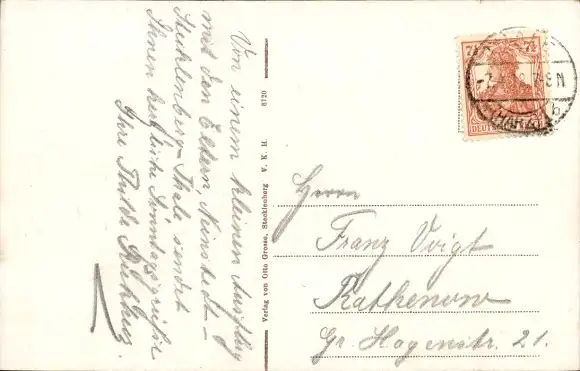 Von einem kleinen Ausflug
mit den Eltern, Neinstedt-
Stecklenberg-Thale sendet
Ihnen herzliche Sonntagsgrüße
Ihre
Verlag von Otto Grosse, Stecklenberg V. K. H 8720
7½ 7½
DEUTS
(HARZ)
Herrn
Franz Voigt
Rathenow
Gr. Hagenstr. 21.